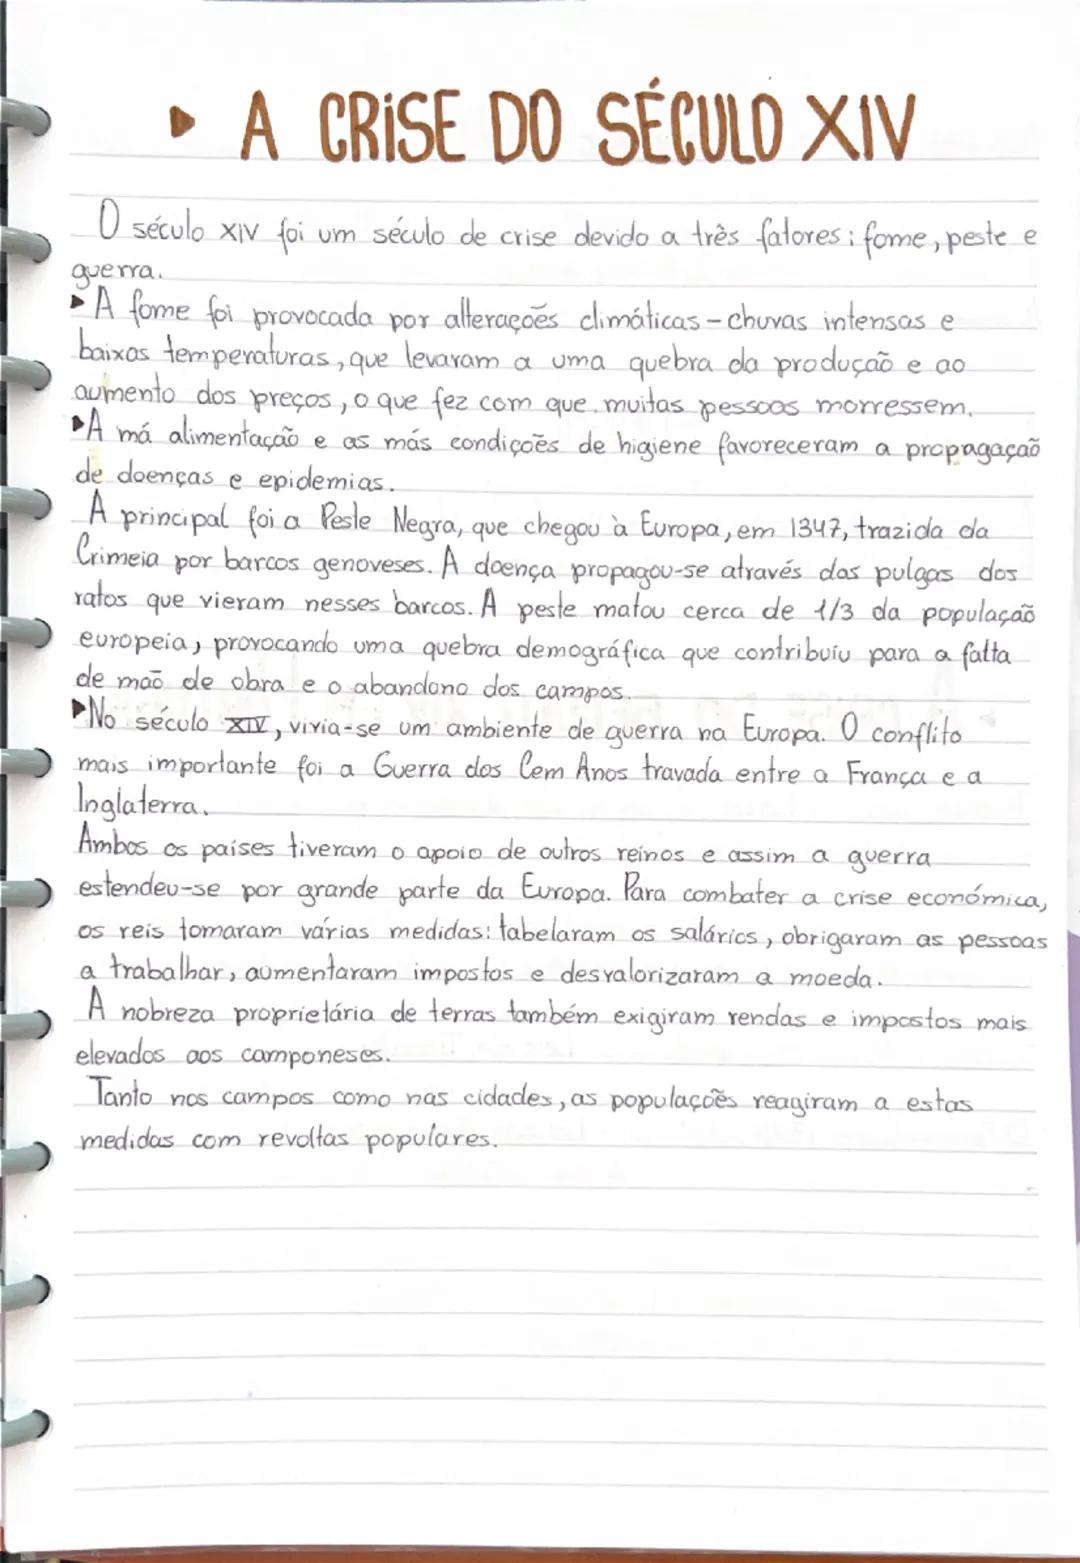 ▸ A CRISE DO SÉCULO XIV
O século XIV foi um século de crise devido a três fatores: fome, peste e
guerra.
▸A fome foi provocada por alterações climáticas - chuvas intensas e
baixas temperaturas, que levaram a uma quebra da produção e ao
aumento dos preços, o que fez com que muitas pessoas morressem.
▸A má alimentação e as más condições de higiene favoreceram a propagação
de doenças e epidemias.
A principal foi a Peste Negra, que chegou à Europa, em 1347, trazida da
Crimeia por barcos genoveses. A doença propagou-se através das pulgas dos
ratos que vieram nesses barcos. A peste matou cerca de 1/3 da população
europeia, provocando uma quebra demográfica que contribuiu para a falta
de mão de obra e o abandono dos campos.
▸No século XIV, vivia-se um ambiente de guerra na Europa. O conflito
mais importante foi a Guerra dos Cem Anos travada entre a França e a
Inglaterra.
Ambos os países tiveram o apoio de outros reinos e assim a guerra
estendeu-se por grande parte da Europa. Para combater a crise económica,
os reis tomaram várias medidas: tabelaram os salários, obrigaram as pessoas
a trabalhar, aumentaram impostos e desvalorizaram a moeda.
A nobreza proprietária de terras também exigiram rendas e impostos mais
elevados aos camponeses.
Tanto nos campos como nas cidades, as populações reagiram a estas
medidas com revoltas populares.